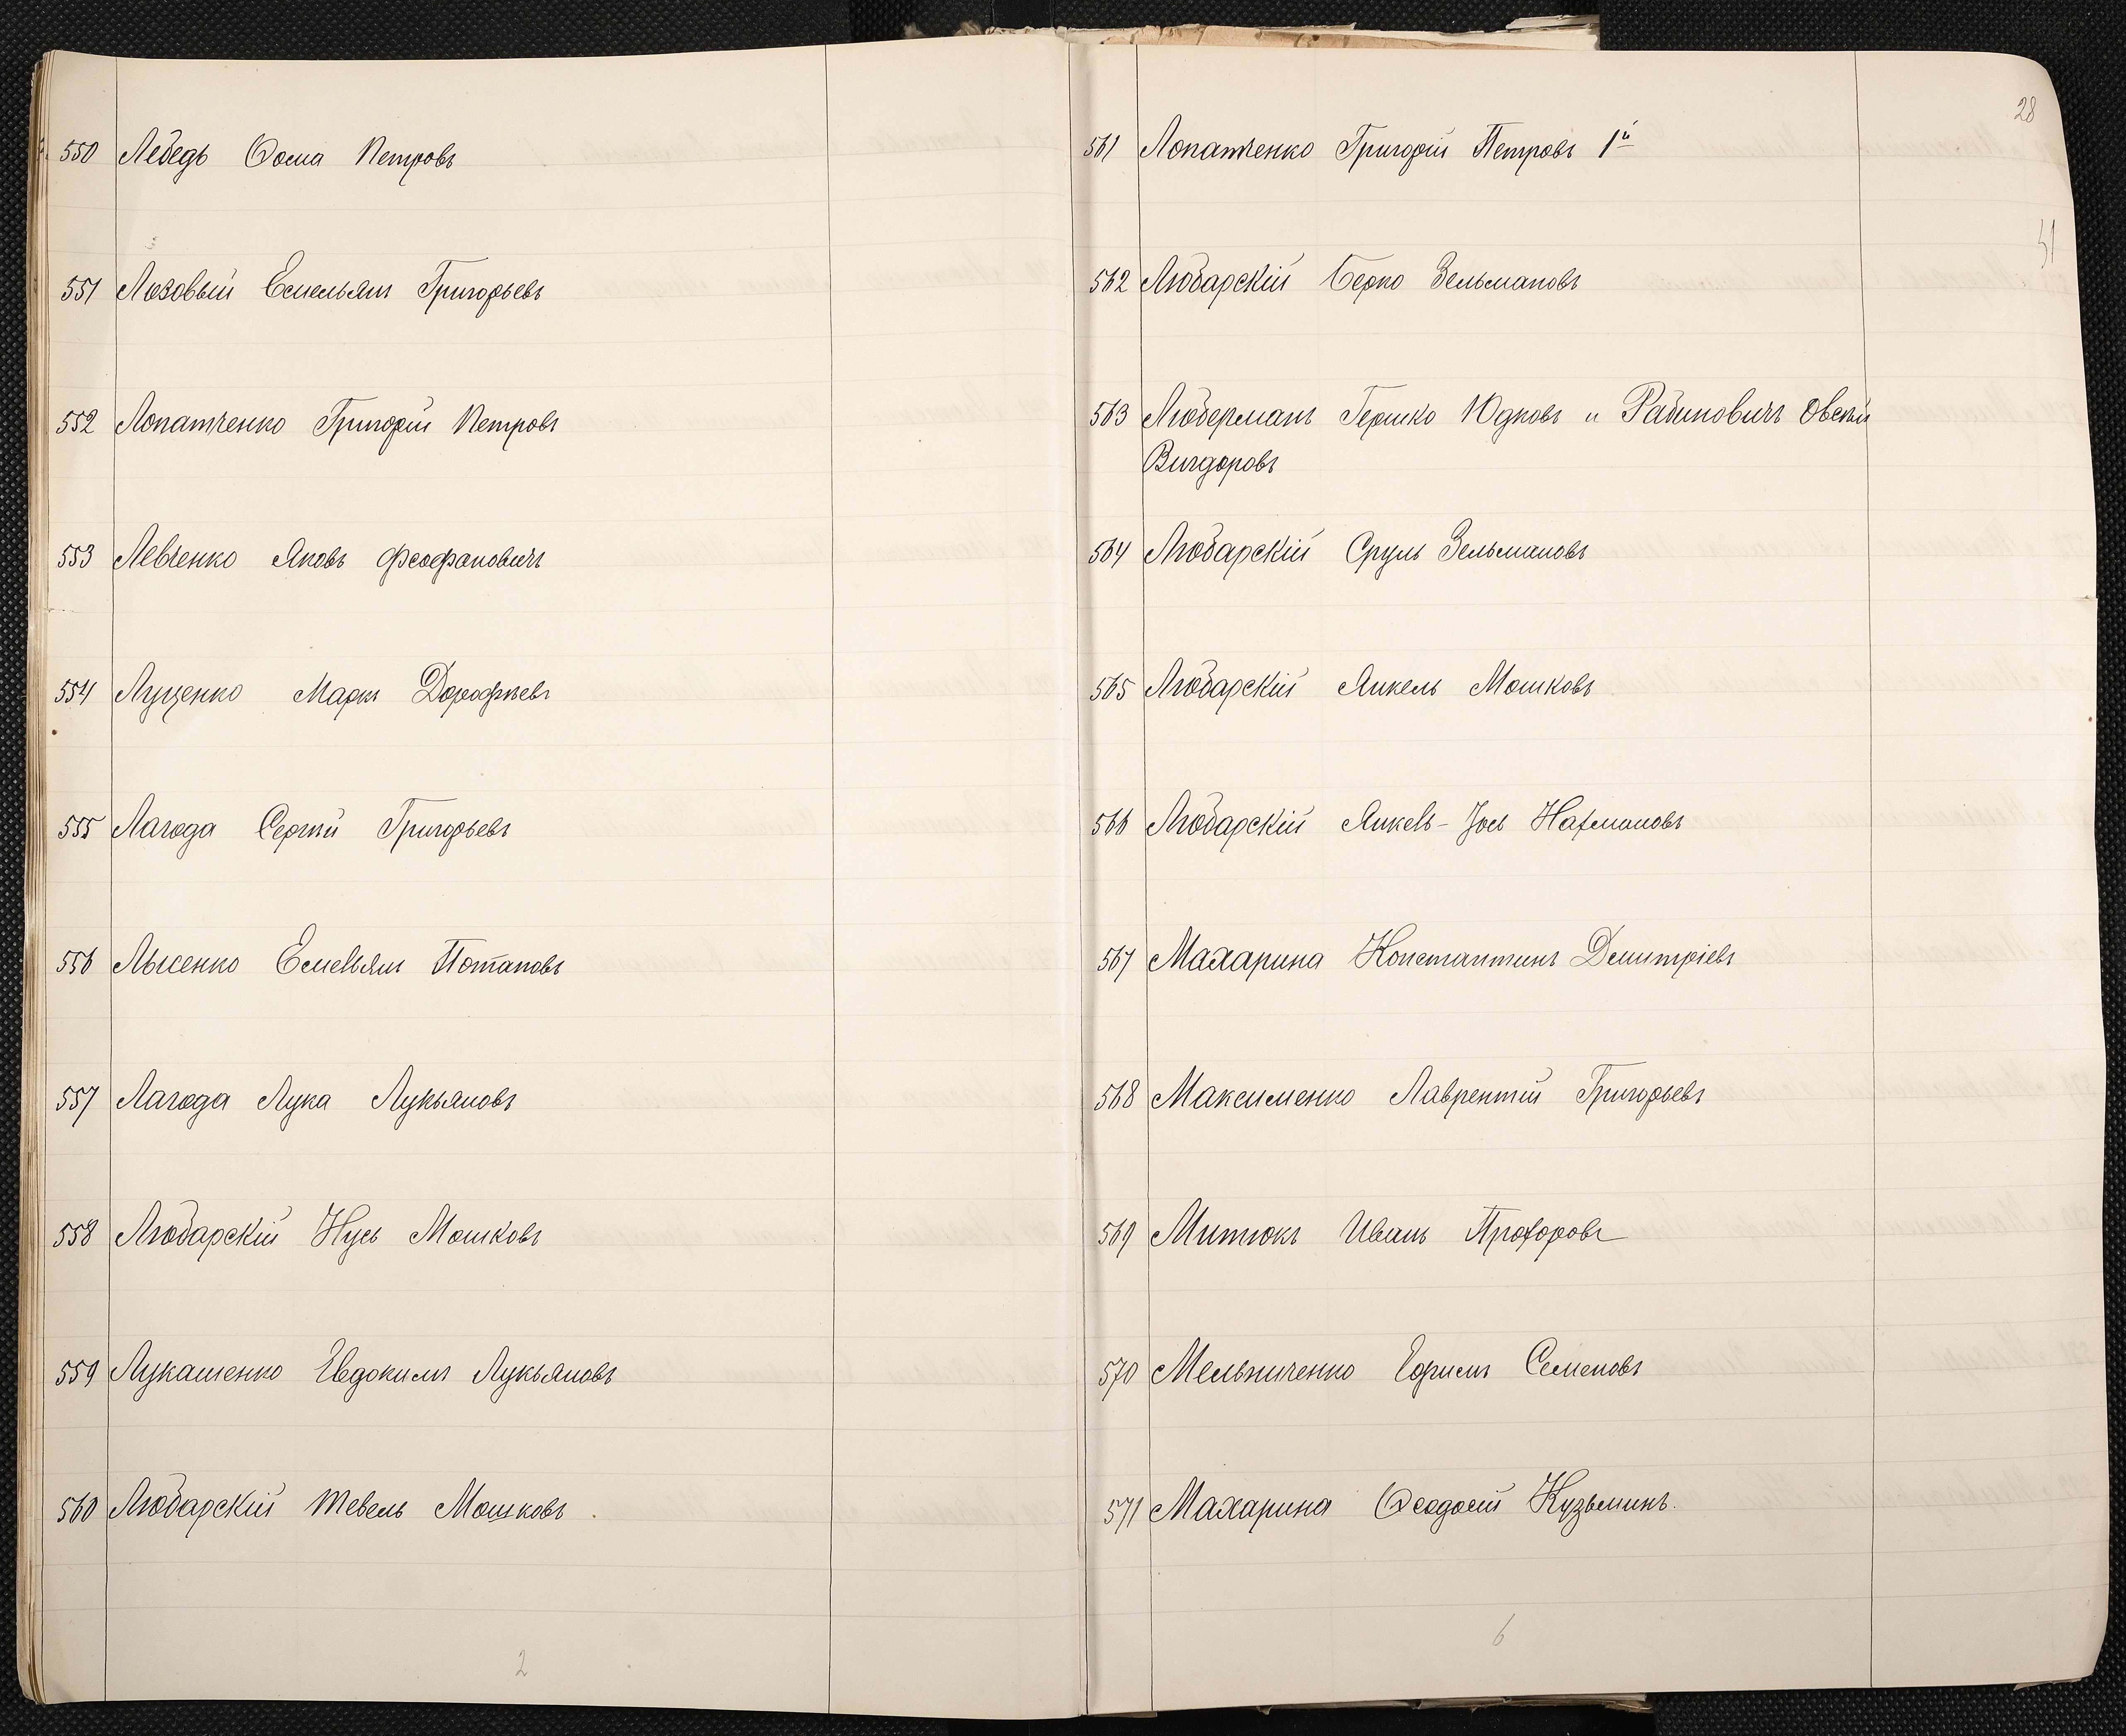 550 Лебедь Ѳома Петровъ
551 Лозовый Емельянъ Григорьевъ
552 Лопатченко Григорій Петровъ
553 Левченко Яковъ Феофановичъ
554 Луценко Маркъ Дорофѣевъ
555 Лагода Сергѣй Григорьевъ
556 Лысенко Емельянъ Потаповъ
557 Лагода Лука Лукьяновъ
558 Любарскій Нусь Мошковъ
559 Лукашенко Евдокимъ Лукьяновъ
560 Любарскій Тевель Мошковъ
2
28
51
561 Лопатченко Григорій Петровъ 1й
562 Любарскій Берко Зельмановъ
563 Люберманъ Гершко Юдковъ и Рабиновичъ Овсѣй
Вигдоровъ
564 Любарскій Сруль Зельмановъ
565 Любарскій Янкель Мошковъ
566 Любарскій Янкель-Іось Нахмановъ
567 Махарина Константинъ Дмитріевъ
568 Максименко Лаврентій Григорьевъ
569 Митюкъ Иванъ Прохоровъ
570 Мельниченко Ефимъ Семеновъ
571 Махарина Ѳеодосій Кузьминъ.
6